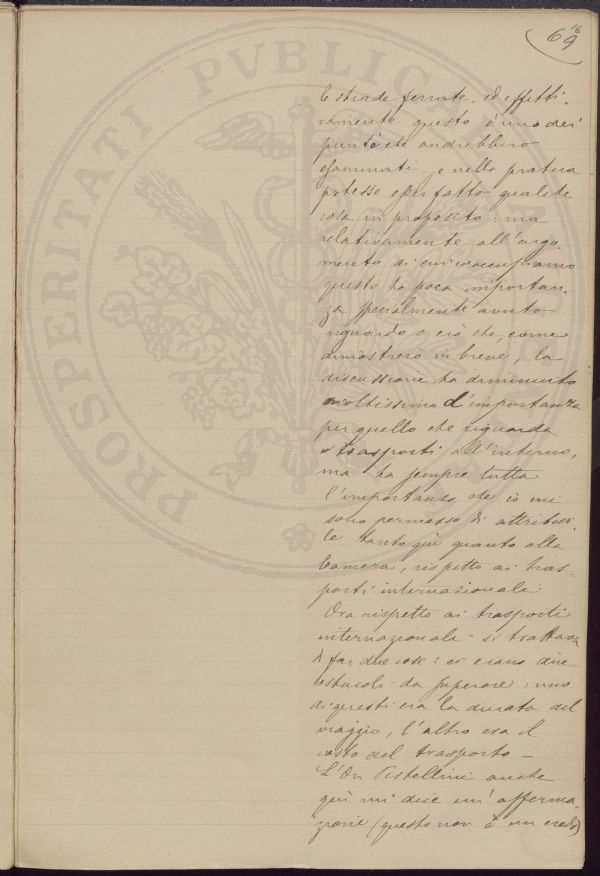 69
le strade ferrate, ed effetti-
vamente questo è uno dei
punti che andrebbero
esaminati, e nella pratica
potesse esser fatto qualche
cosa in proposito: ma
relativamente all'argo-
mento di cui ci occupiamo
questo ha poca importan-
za specialmente avuto
riguardo a ciò che, come
dimostrerò in breve, la
discussione ha diminuito
moltissimo d'importanza
per quello che riguarda
i trasporti all'interno,
ma ha sempre tutta
l'importanza che io mi
sono permesso di attribuir-
le tanto qui quanto alla
Camera, rispetto ai tras-
porti internazionali.
Ora rispetto ai trasporti
internazionali si trattava
di far due cose: ci erano due
ostacoli da superare: uno
di questi era la durata del
viaggio, l'altro era il
costo del trasporto –
L'On Pestellini anche
qui mi dice un'afferma-
zione (questo non è un credo)
PROSPERITATI PVBLICAE